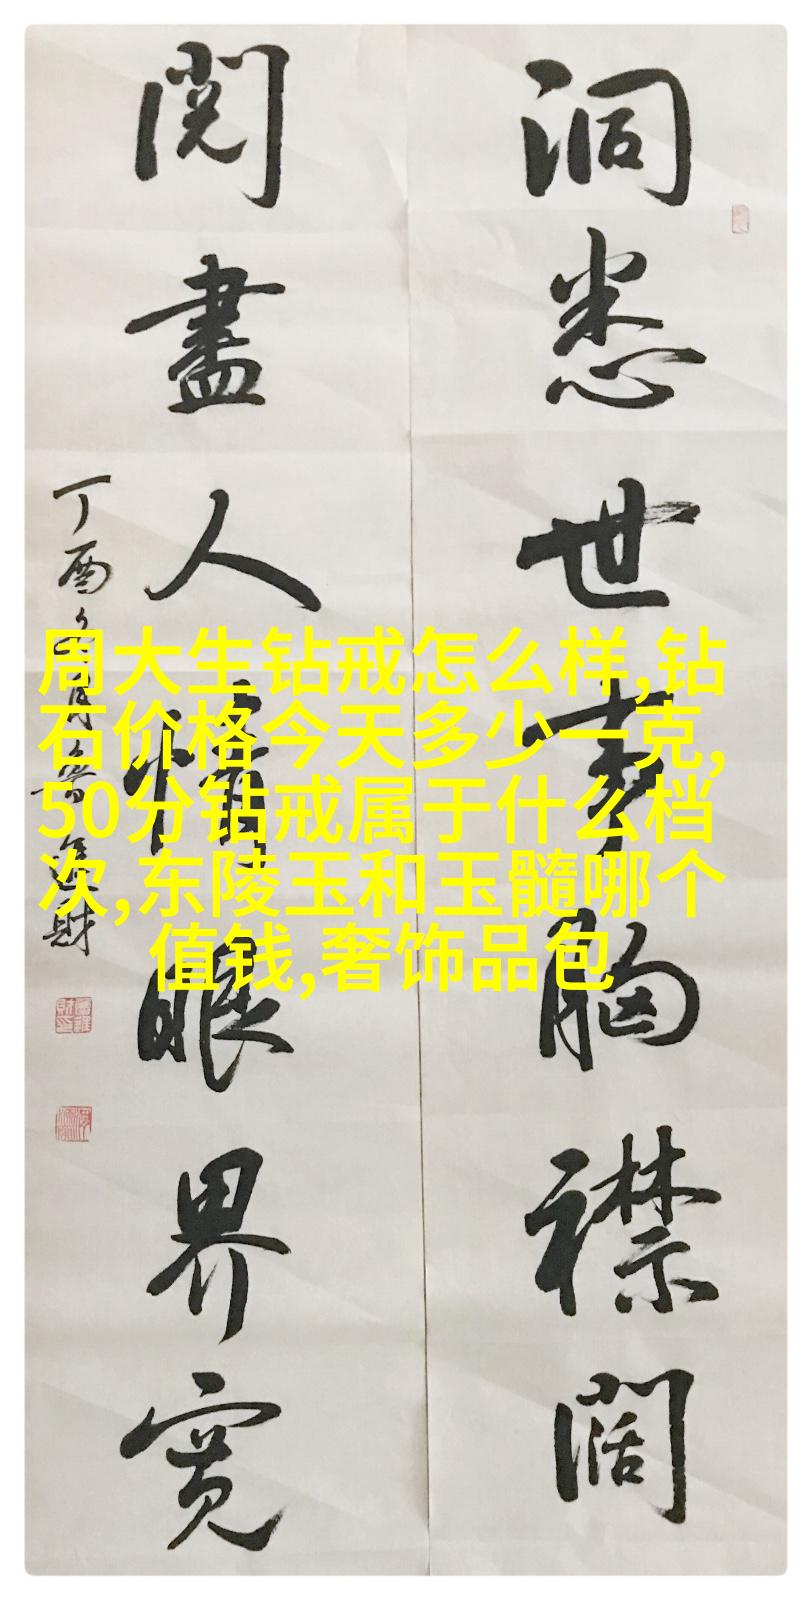 洞悉世事胸襟阔
閱盡人情眼界寬
丁酉
財
周大生钻戒怎么样,钻
石价格今天多少一克,
50分钻戒属于什么档
次,东陵玉和玉髓哪个
值钱,奢饰品包